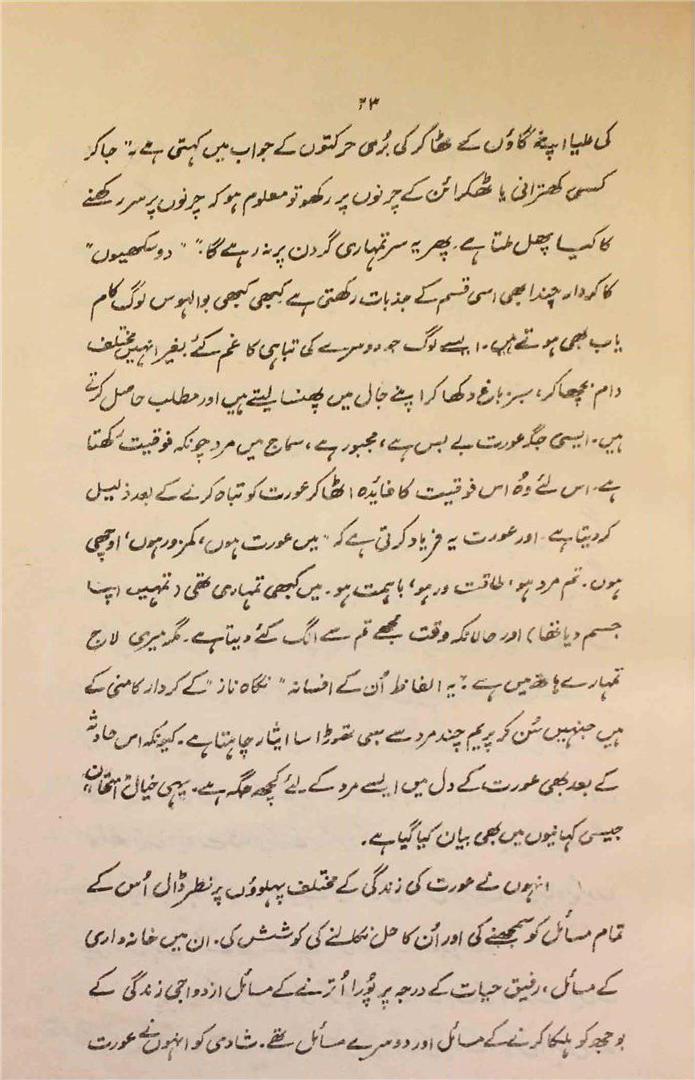 ۲۳
کی ملیا اپنے گاؤں کے ٹھاکر کی بُری حرکتوں کے جواب میں کہتی ہے ۔" جا کر
کسی کھترانی یا ٹھکرائن کے چرنوں پر رکھو تو معلوم ہو کہ چرنوں پر سر رکھنے
کا کیسا پھل ملتا ہے۔ پھر یہ سر تمہاری گردن پر نہ رہے گا۔" "دو سکھیوں"
کا کردار چندا بھی اسی قسم کے جذبات رکھتی ہے کبھی کبھی بوالہوس لوگ کام
یاب بھی ہوتے ہیں۔ ایسے لوگ جو دوسرے کی تباہی کا غم کئے بغیر انہیں مختلف
دام بچھا کر، سبز باغ دکھا کر اپنے جال میں پھنسا لیتے ہیں اور مطلب حاصل کرتے
ہیں۔ ایسی جگہ عورت بے بس ہے، مجبور ہے، سماج میں مرد چونکہ فوقیت رکھتا
ہے۔ اس لئے وہ اس فوقیت کا فائدہ اٹھا کر عورت کو تباہ کرنے کے بعد ذلیل
کر دیتا ہے۔ اور عورت یہ فریاد کرتی ہے کہ "میں عورت ہوں، کمزور ہوں، اوچھی
ہوں۔ تم مرد ہو، طاقت ور ہو، باہمت ہو۔ میں کبھی تمہاری تھی (تمہیں اپنا
جسم دیا تھا) اور حالانکہ وقت مجھے تم سے الگ کئے دیتا ہے۔ مگر میری لاج
تمہارے ہاتھ میں ہے ؟ یہ الفاظ اُن کے افسانہ "نگاہ ناز" کے کردار کامنی کے
ہیں جنہیں سُن کر پریم چند مرد سے بھی تھوڑا سا ایثار چاہتا ہے۔ کیونکہ اس حادثہ
کے بعد بھی عورت کے دل میں ایسے مرد کے لئے کچھ جگہ ہے۔ یہی خیال "امتحان"
جیسی کہانیوں میں بھی بیان کیا گیا ہے۔
انہوں نے عورت کی زندگی کے مختلف پہلوؤں پر نظر ڈال اُس کے
تمام مسائل کو سمجھنے کی اور اُن کا حل نکالنے کی کوشش کی۔ ان میں خانہ داری
کے مسائل، رفیق حیات کے درجہ پر پُورا اُترنے کے مسائل ازدواجی زندگی کے
بوجھ کو ہلکا کرنے کے مسائل اور دوسرے مسائل تھے۔ شادی کو انہوں نے عورت